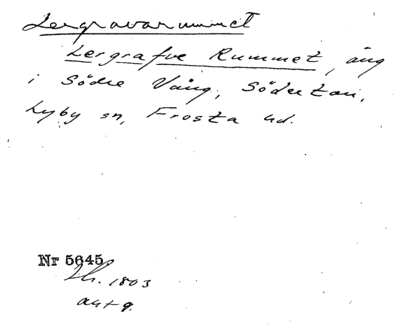 Lergravarummet
Lergrafve Rummet, äng
i Södre Vång, Södertou,
Lyby sn, Frosta hd.
Nr 5645
Sk. 1803
akt 9.